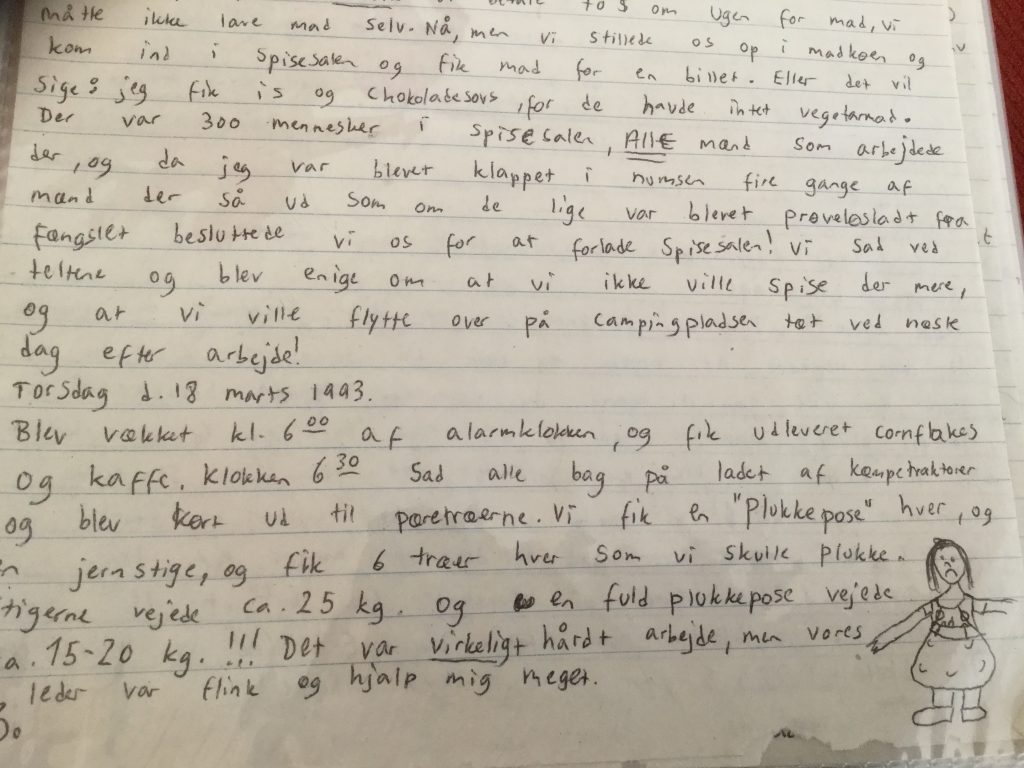 betale 70 $ om Ugen for mad, vi
måtte ikke lave mad selv. Nå, men vi stillede os op i madkøen og
kom ind i spisesalen og fik mad for en billet. Eller det vil
sige: jeg fik is og chokoladesovs, for de havde intet vegetarmad.
Der var 300 mennesker i spisesalen, ALLE mænd som arbejdede
der, og da jeg var blevet klappet i numsen fire gange af
mænd der så ud som om de lige var blevet prøveløsladt fra
fængslet besluttede vi os for at forlade spisesalen! Vi sad ved
teltene og blev enige om at vi ikke ville spise der mere,
og at vi ville flytte over på campingpladsen tæt ved næste
dag efter arbejde!
Torsdag d. 18 marts 1993.
Blev vækket kl. 6 00 af alarmklokken, og fik udleveret cornflakes
og kaffe. Klokken 6 30 sad alle bag på ladet af kæmpetraktorer
og blev kørt ud til pæretræerne. Vi fik en "Plukkepose" hver, og
en jernstige, og fik 6 træer hver som vi skulle plukke.
tigerne vejede ca. 25 kg. og en fuld plukkepose vejede
a. 15-20 kg. !!! Det var virkeligt hårdt arbejde, men vores
leder var flink og hjalp mig meget.